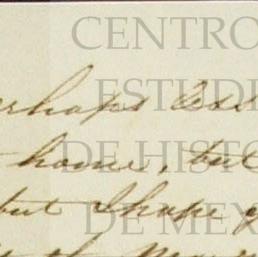 CENTRO
ESTUDI
DE HISTO
DE MEX
erhaps
home, but
but I hope